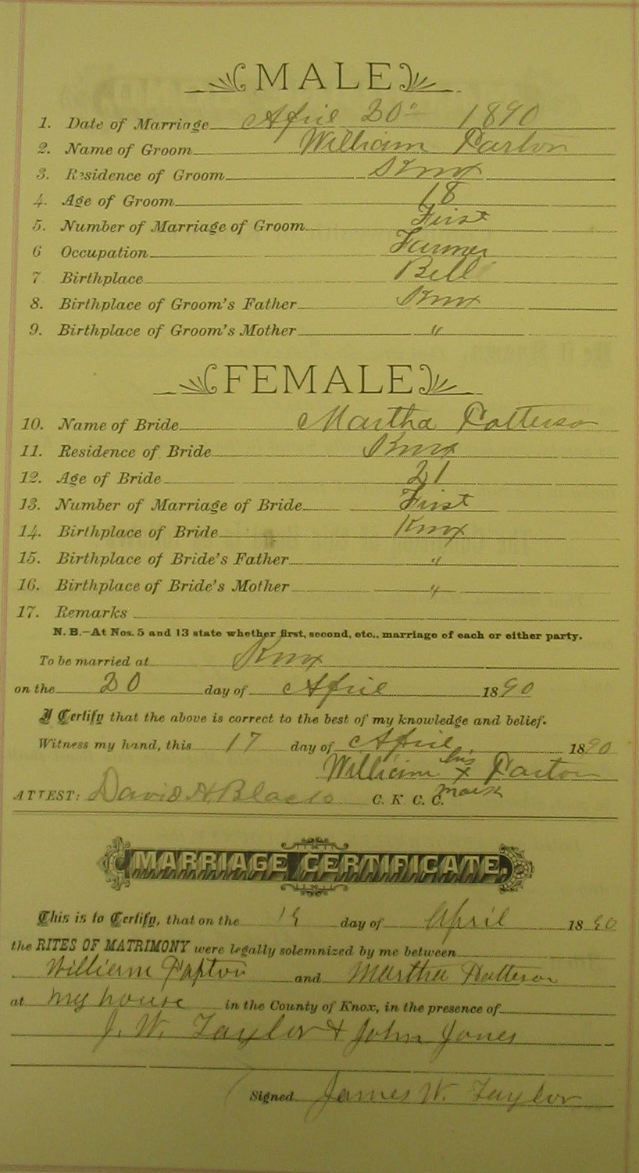 MALE
1. Date of Marriage April 20" 1890
2. Name of Groom William Parton
3. Residence of Groom Knox
4. Age of Groom 18
5. Number of Marriage of Groom First
6 Occupation Farmer
7 Birthplace Bell
8. Birthplace of Groom's Father Knox
9. Birthplace of Groom's Mother "
FEMALE
10. Name of Bride Martha Patterson
11. Residence of Bride Knox
12. Age of Bride 21
13. Number of Marriage of Bride First
14. Birthplace of Bride Knox
15. Birthplace of Bride's Father "
16. Birthplace of Bride's Mother "
17. Remarks
N. B.—At Nos. 5 and 13 state whether first, second, etc., marriage of each or either party.
To be married at Knox
on the 20 day of April 1890
I Certify that the above is correct to the best of my knowledge and belief.
Witness my hand, this 17 day of April 1890
William his x mark Parton
ATTEST: David H Black C. K. C. C.
MARRIAGE CERTIFICATE.
This is to Certify, that on the 19 day of April 1890
the RITES OF MATRIMONY were legally solemnized by me between
William Parton and Martha Patterson
at my house in the County of Knox, in the presence of
J. W. Taylor & John Jones
Signed James W. Taylor